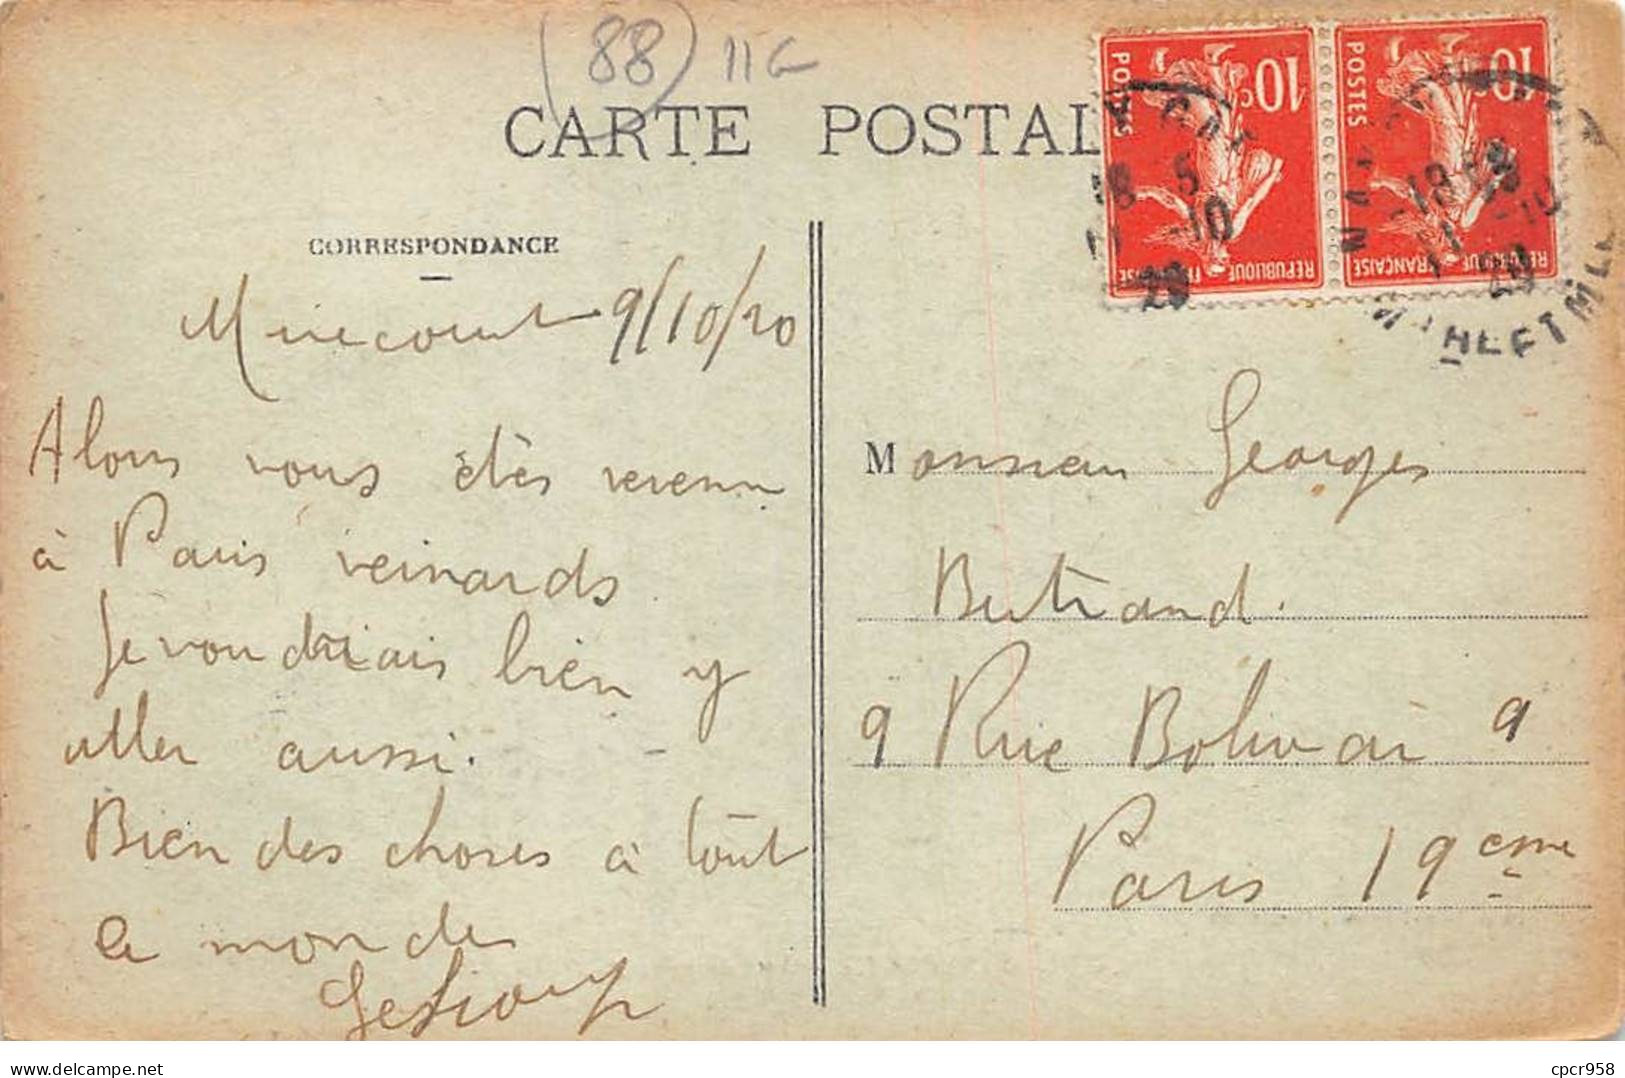 (88) 11G
CARTE POSTALE
POSTES 10c REPUBLIQUE FRANÇAISE
POSTES 10c REPUBLIQUE FRANÇAISE
CORRESPONDANCE
Mirecourt 9/10/20
Alors vous êtes revenu
à Paris veinards
Je voudriais bien y
aller aussi.
Bien des choses à tout
le monde
Monsieur Georges
Bertrand.
9 Rue Bolivar 9
Paris 19eme
delcampe.net
cpcr958